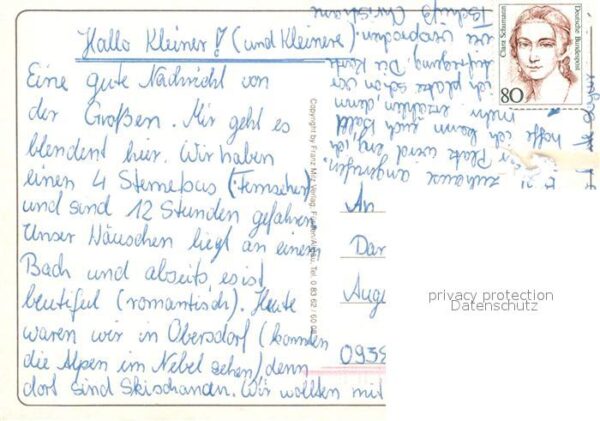 Hallo Kleiner! (und Kleinere).
Eine gute Nachricht von
der Großen. Mir geht es
blendent hier. Wir haben
einen 4 Sternebus (Fernseher)
und sind 12 Stunden gefahren
Unser Häuschen liegt an einem
Bach und abseits, es ist
beutiful (romantisch). Heute
waren wir in Obersdorf (konnten
die Alpen im Nebel sehen) denn
dort sind Skischanzen. Wir wollten mit
zuhause angerufen.
Platz wird eng, ich
hoffe ich kann euch bald
mehr erzählen denn
ich platze schon vor
Aufregung. Die Karte
wie versprochen.
Tschüß Christiane
An
Dar
Auge
Copyright by Franz Verlag, Tel. 0 83 62 /
Clara Schumann
Deutsche Bundespost
80
privacy protection
Datenschutz